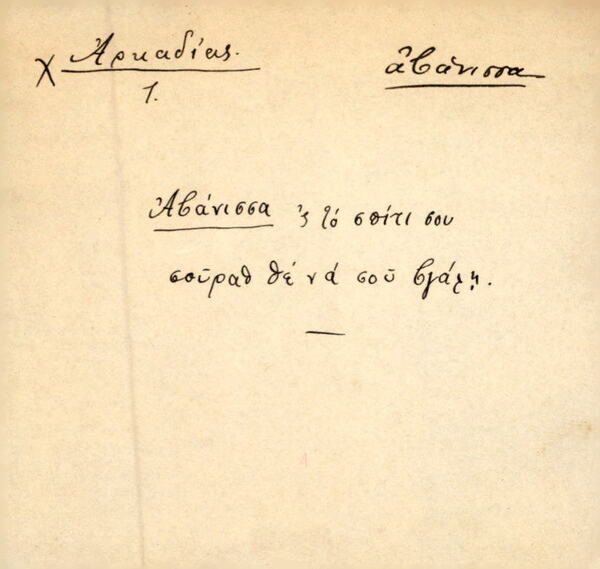 χ Ἀρκαδίας. ἀβάνισσα
1.
Ἀβάνισσα ς τό σπίτι σου
σοῦραθ θέ νά σοῦ βγάλῃ.